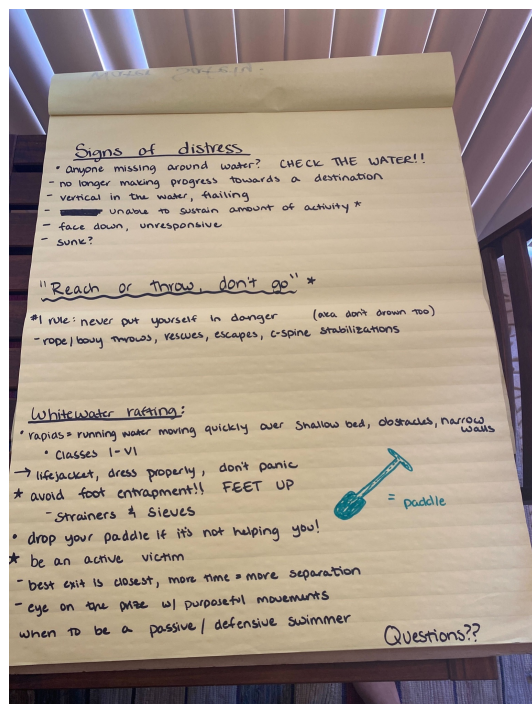 Signs of distress
• anyone missing around water? CHECK THE WATER!!
- no longer making progress towards a destination
- vertical in the water, flailing
- unable to sustain amount of activity *
- face down, unresponsive
- sunk?
"Reach or throw, don't go" *
#1 rule: never put yourself in danger (aka don't drown too)
- rope/bouy throws, rescues, escapes, c-spine stabilizations
Whitewater rafting:
• rapids = running water moving quickly over shallow bed, obstacles, narrow
walls
• Classes I-VI
→ lifejacket, dress properly, don't panic
* avoid foot entrapment!! FEET UP
- Strainers & Sieves
= paddle
• drop your paddle if it's not helping you!
* be an active victim
- best exit is closest, more time = more separation
- eye on the prize w/ purposeful movements
when to be a passive / defensive swimmer
Questions??